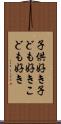 子供好き子
ども好きこ
ども好き